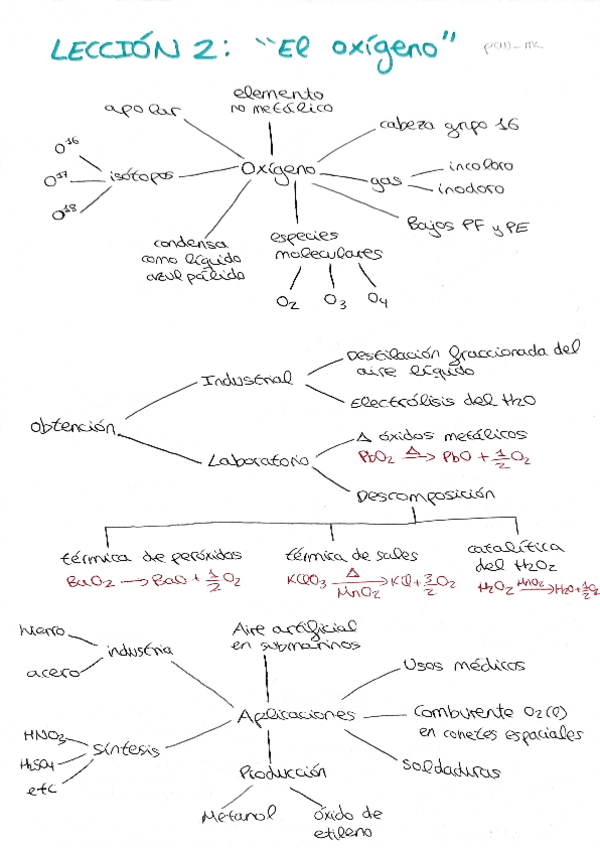 LECCIÓN 2: "El oxígeno"
elemento
no metálico
apolar
cabeza grupo 16
O16
O17
O18
isótopos
Oxígeno
gas
incoloro
inodoro
Bajos PF y PE
condensa
como líquido
azul pálido
especies
moleculares
O2 O3 O4
Obtención
Industrial
Destilación fraccionada del
aire líquido
Electrólisis del H2O
Laboratorio
Δ óxidos metálicos
PbO2 Δ→ PbO + 1/2 O2
Descomposición
térmica de peróxidos
BaO2 → BaO + 1/2 O2
térmica de sales
KClO3 Δ→ MnO2 KCl + 3/2 O2
catalítica
del H2O2
H2O2 MnO2→ H2O + 1/2 O2
hierro
acero
industria
Aire artificial
en submarinos
Usos médicos
Aplicaciones
Comburente O2(l)
en cohetes espaciales
soldaduras
HNO3
H2SO4
etc
síntesis
Producción
Metanol
óxido de
etileno